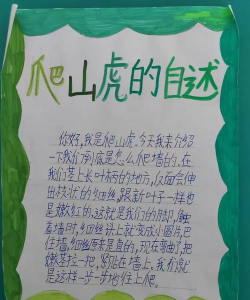 爬山虎的自述
你好,我是爬山虎。今天我来介绍
一下我们到底是怎么爬墙的。在
我们茎上长叶柄的地方,反面会伸
出枝状的细丝,跟新叶子一样也
是嫩红的,这就是我们的脚,触
着墙时,细丝头上就变成小圆片,巴
住墙,细丝原来是直的,现在弯曲了,把
嫩茎拉一把,紧贴在墙上。我们就
是这样一步一步地往上爬。